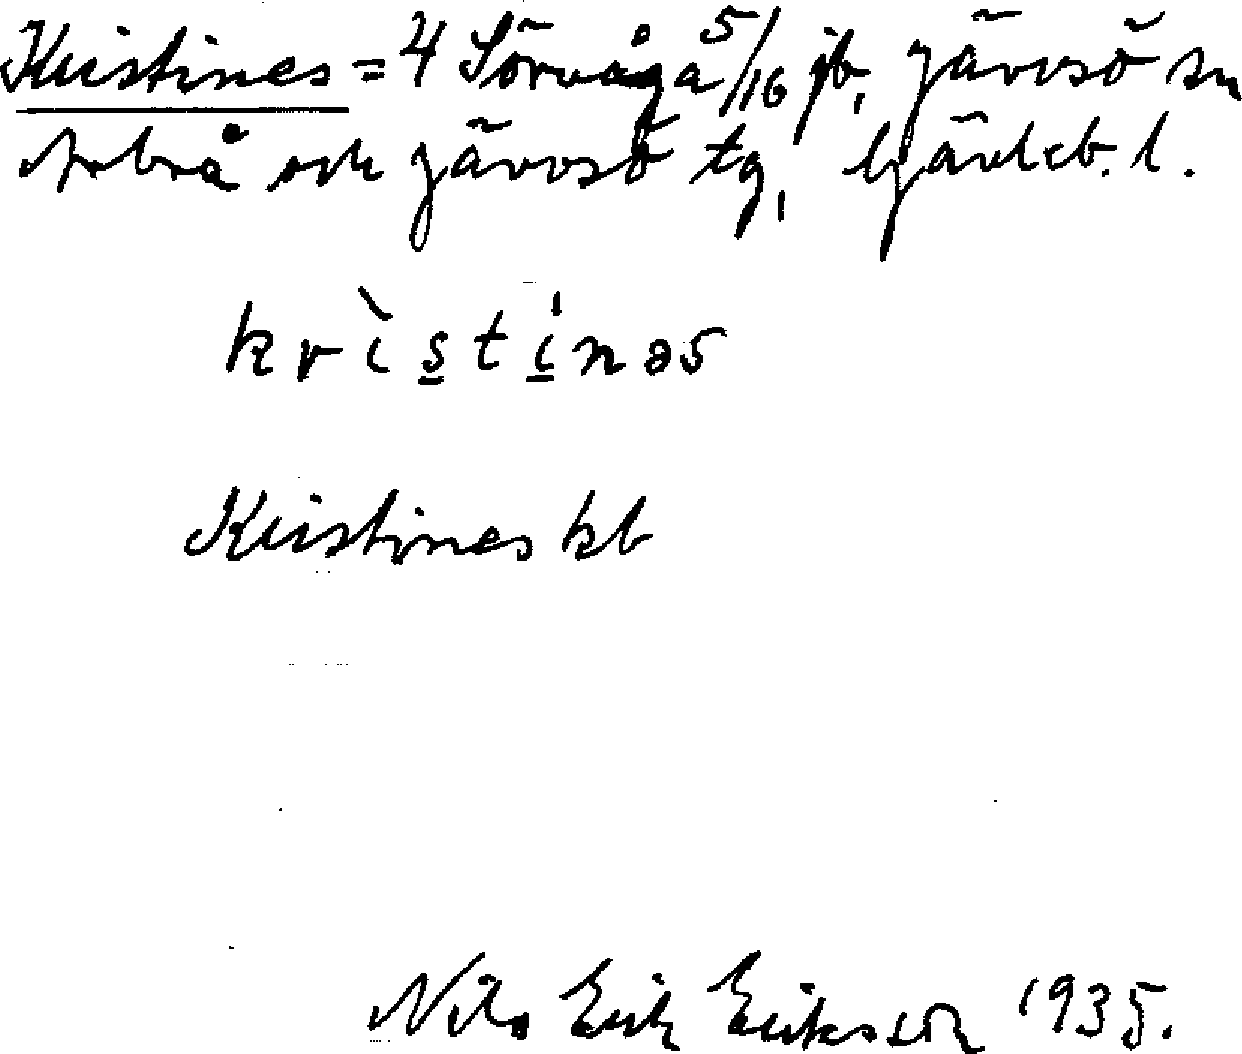 Kristines = 4 Sörvåga 5/16 jb, Järvsö sn
Arbrå och Järvsö tg, Gävleb. l.
krìstinəs
Kristines kb
Nils Erik Eriksson 1935.